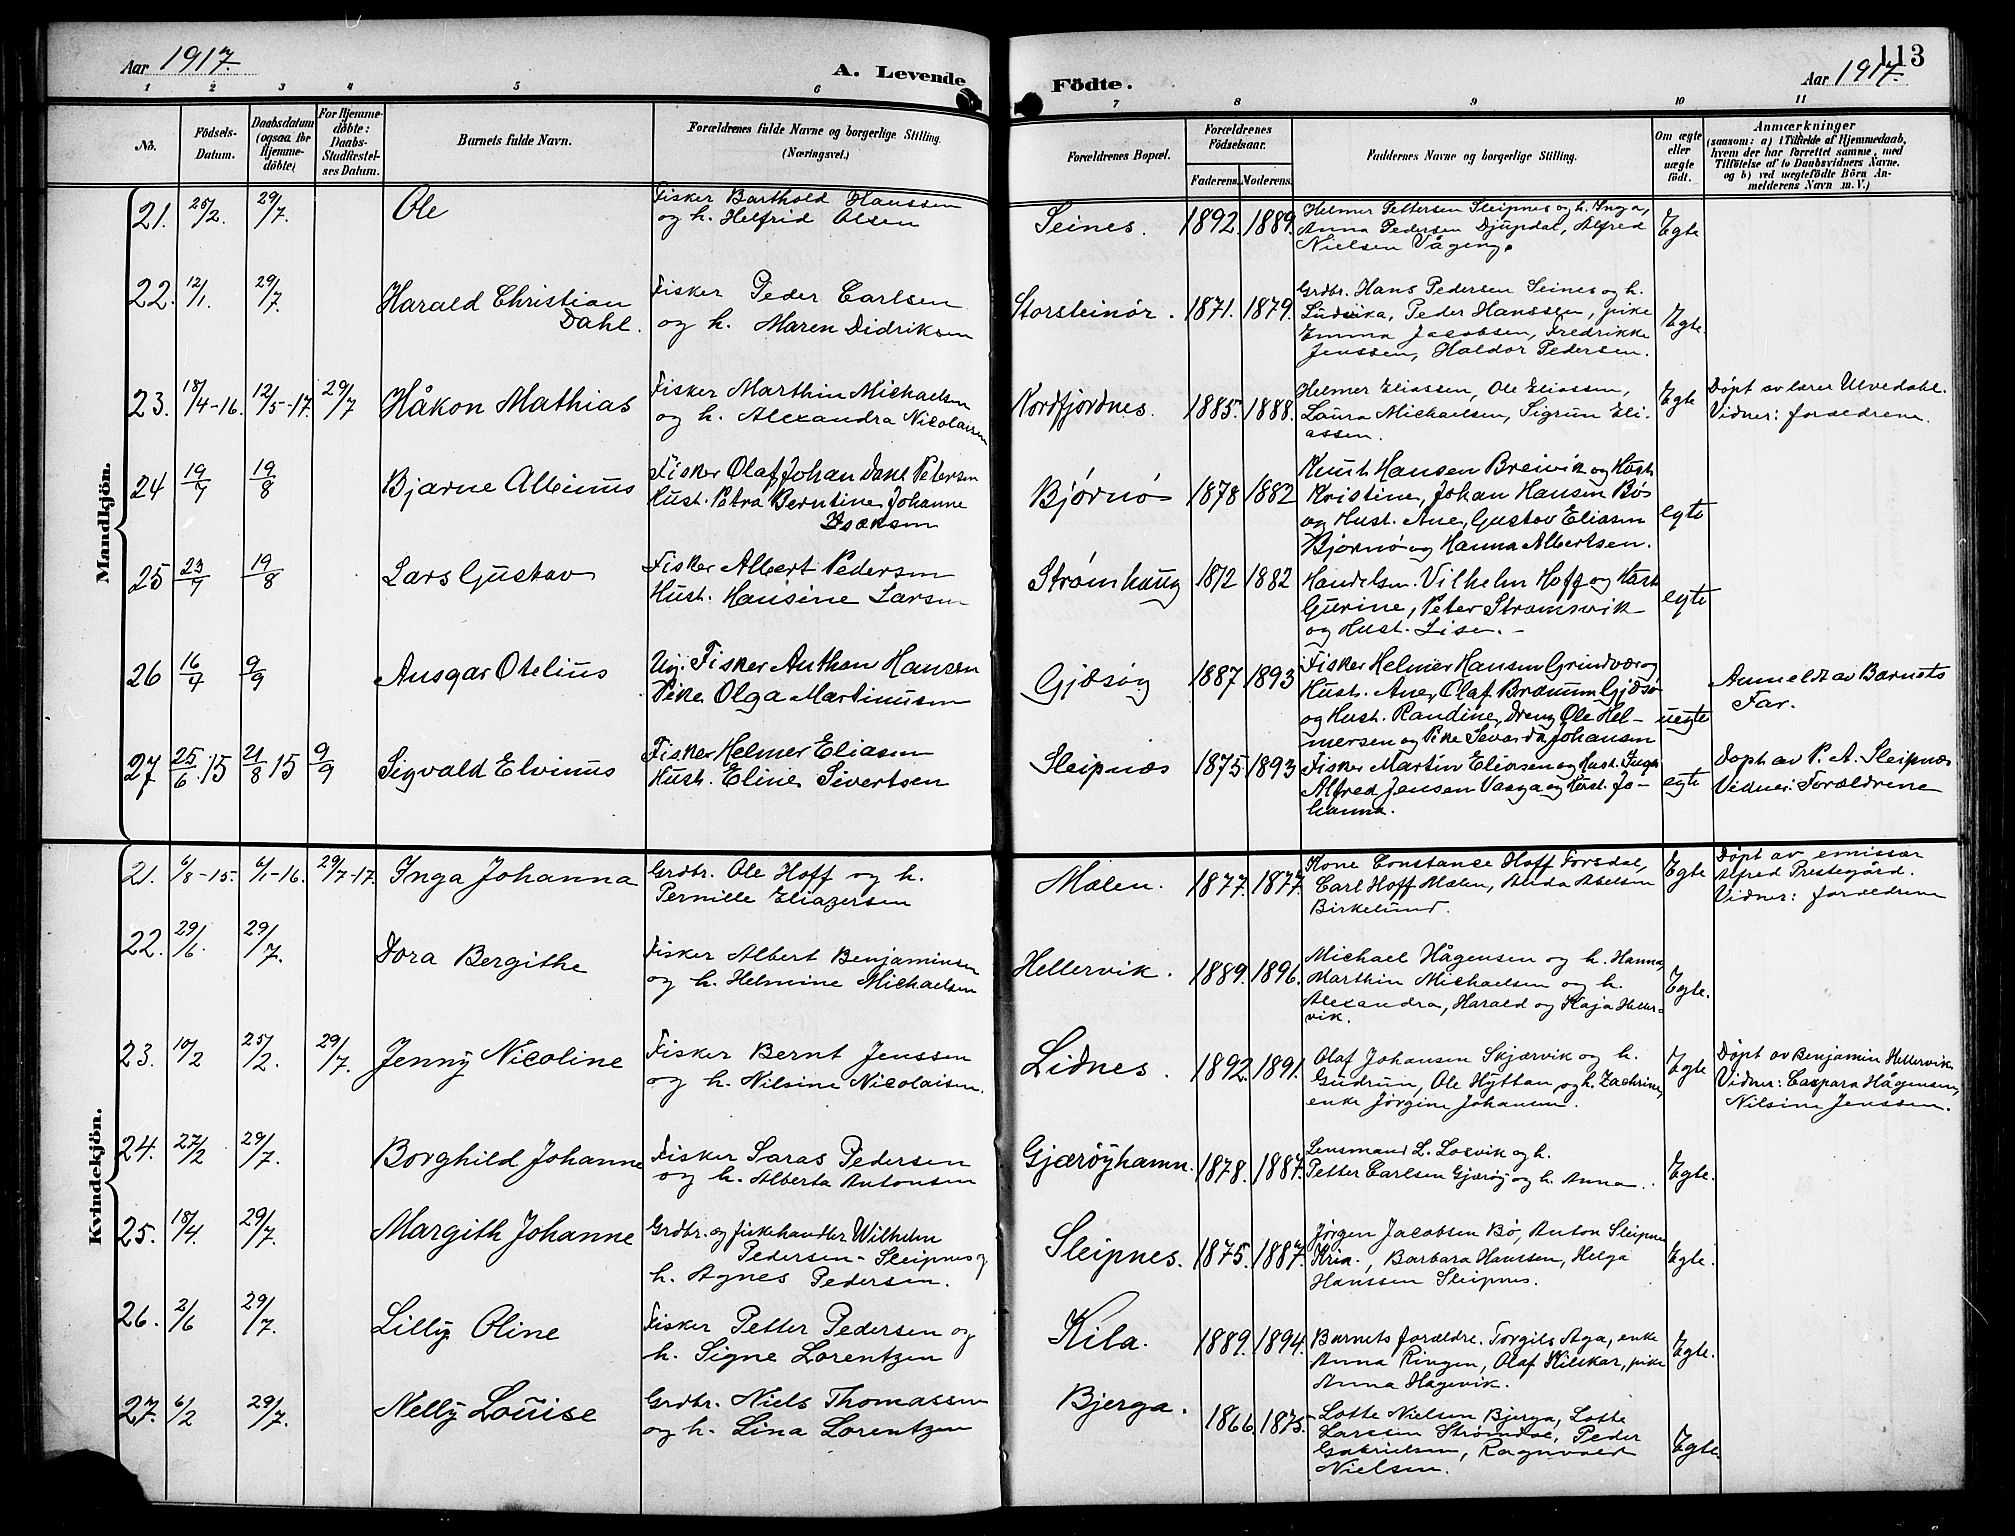 Aar 1917.
A. Levende
Födte.
113
Aar 1917.
1 2 3 4 5 6 7 8 9 10 11
No.
Födsels-
Datum.
Daabsdatum
(ogsaa for
Hjemme-
döbte)
For Hjemme-
döbte:
Daabs-
Stadfæstel-
ses Datum.
Barnets fulde Navn.
Forældrenes fulde Navne og borgerlige Stilling.
(Næringsvei.)
Forældrenes Bopæl.
Forældrenes
Födselsaar.
Faderens. Moderens.
Faddernes Navne og borgerlige Stilling.
Om ægte
eller
uægte
födt.
Anmærkninger
(saasom: a) i Tilfælde af Hjemmedaab,
hvem der har forrettet samme, med
Tilföielse af to Daabsvidners Navne.
og b) ved uægtefödte Börn An-
melderens Navn m. V.)
Mandkjön.
21. 25/2. 29/7. Ole
Fisker Barthold Hanssen
og h. Helfrid Olsen
Seines. 1892. 1889.
Helmer Pettersen Sleipnes og h. Inga,
Anna Pedersen Djupdal, Alfred
Nielsen Våging.
Egte
22. 12/1. 29/7. Harald Christian
Dahl.
Fisker Peder Carlsen
og h. Maren Didriksen
Storsteinör. 1871. 1879.
Grdbr. Hans Pedersen Seines og h.
Ludvika, Peder Hanssen, pike
Emma Jacobsen, Fredrikke
Jenssen, Haldor Pedersen.
Egte
23. 18/4-16. 12/5-17. 29/7 Håkon Mathias
Fisker Marthin Michaelsen
og h. Alexandra Nicolaisen
Nordfjordnes. 1885. 1888.
Helmer Eliassen, Ole Eliassen,
Laura Michaelsen, Sigrun Eli-
assen.
Egte
Döpt av lærer Ulvedahl.
Vidner: forældrene.
24 19/7 19/8 Bjarne Albinus
Fisker Olaf Johan Dahl Petersen
Hust. Petra Berntine Johanne
Isaksen
Bjørnø 1878 1882
Knut Hansen Breivik og Hust.
Kristine, Johan Hansen Bø
og Hust. Ane, Gustav Eliasen
Bjørnø og Hanna Albertsen.
egte
25 23/7 19/8 Lars Gustav
Fisker Albert Pedersen
Hust. Hansine Larsen
Strømhaug 1872 1882
Handelsm. Vilhelm Hoff og Hust.
Gurine, Peter Strømsvik
og Hust. Lise.
egte
26 16/7 9/9 Ansgar Otelius
Ug. Fisker Anthon Hansen
Pike Olga Martinusen
Gjæsøy 1887 1893
Fisker Helmer Hansen Grindvær og
Hust. Ane, Olaf Bræmm Gjæsø
og Hust. Randine, Dreng Ole Hel-
mersen og Pike Sevarda Johansen
uegte
Anmeldt av Barnets
Far.
27 25/6 15 21/8 15 9/9 Sigvald Elvinus
Fisker Helmer Eliasen
Hust. Eline Sivertsen
Sleipnæs 1875 1893
Fisker Martin Eliasen og Hust. Inga
Alfred Jensen Vaaga og Hust. Jo-
hanna.
egte
Døpt av P. A. Sleipnæs
Vidner: Forældrene
Kvindekjön.
21. 6/8-15. 6/1-16. 29/7-17. Inga Johanna
Grdbr. Ole Hoff og h.
Pernille Eliazersen
Mælen. 1877. 1877.
Kone Constanse Hoff Forsdal,
Carl Hoff Mælen, Anda Abelsen
Birkelund.
Egte
Döpt av emissær
Alfred Prestegård.
Vidner: forældrene
22. 29/6. 29/7. Dora Bergithe
Fisker Albert Benjaminsen
og h. Helmine Michaelsen
Hellervik. 1889. 1896.
Michael Hågensen og h. Hanna,
Marthin Michaelsen og h.
Alexandra, Harald og Kaja Heller-
vik.
Egte.
23. 10/2 25/2. 29/7. Jenny Nicoline
Fisker Bernt Jenssen
og h. Nilsine Nicolaisen.
Lidnes. 1892. 1891.
Olaf Johansen Skjærvik og h.
Gudrun, Ole Hyttan og h. Zachrine,
enke Jørgine Johansen.
Egte
Döpt av Benjamin Hellervik.
Vidner: Caspara Hågensen,
Nilsine Jenssen.
24. 27/2 29/7. Borghild Johanne
Fisker Saras Pedersen
og h. Alberta Antonsen
Gjærøyhamn. 1878. 1887.
Lensmand L. Losvik og h.
Petter Carlsen Gjærøy og h. Anna.
Egte.
25. 18/4. 29/7. Margith Johanne
Grdbr. og fiskehandler Wilhelm
Pedersen-Sleipnes og
h. Agnes Pedersen.
Sleipnes. 1875. 1887.
Jørgen Jacobsen Bø, Anton Sleipnes
Kria., Barbara Hanssen, Helga
Hanssen Sleipnes.
Egte.
26. 2/6 29/7. Lilly Oline
Fisker Petter Pedersen og
h. Signe Lorentzen
Kila. 1889. 1894.
Barnets forældre. Torgils Aga, enke
Anna Ringen, Olaf Kilskar, pike
Anna Hagevik.
Egte.
27. 6/2 29/7. Nelly Louise
Grdbr. Niels Thomassen
og h. Lina Lorentzen
Bjerga. 1866. 1875.
Lotte Nielsen Bjerga, Lotte
Larssen Strømdal, Peder
Gabrielsen, Ragnvald
Nielsen.
Egte.